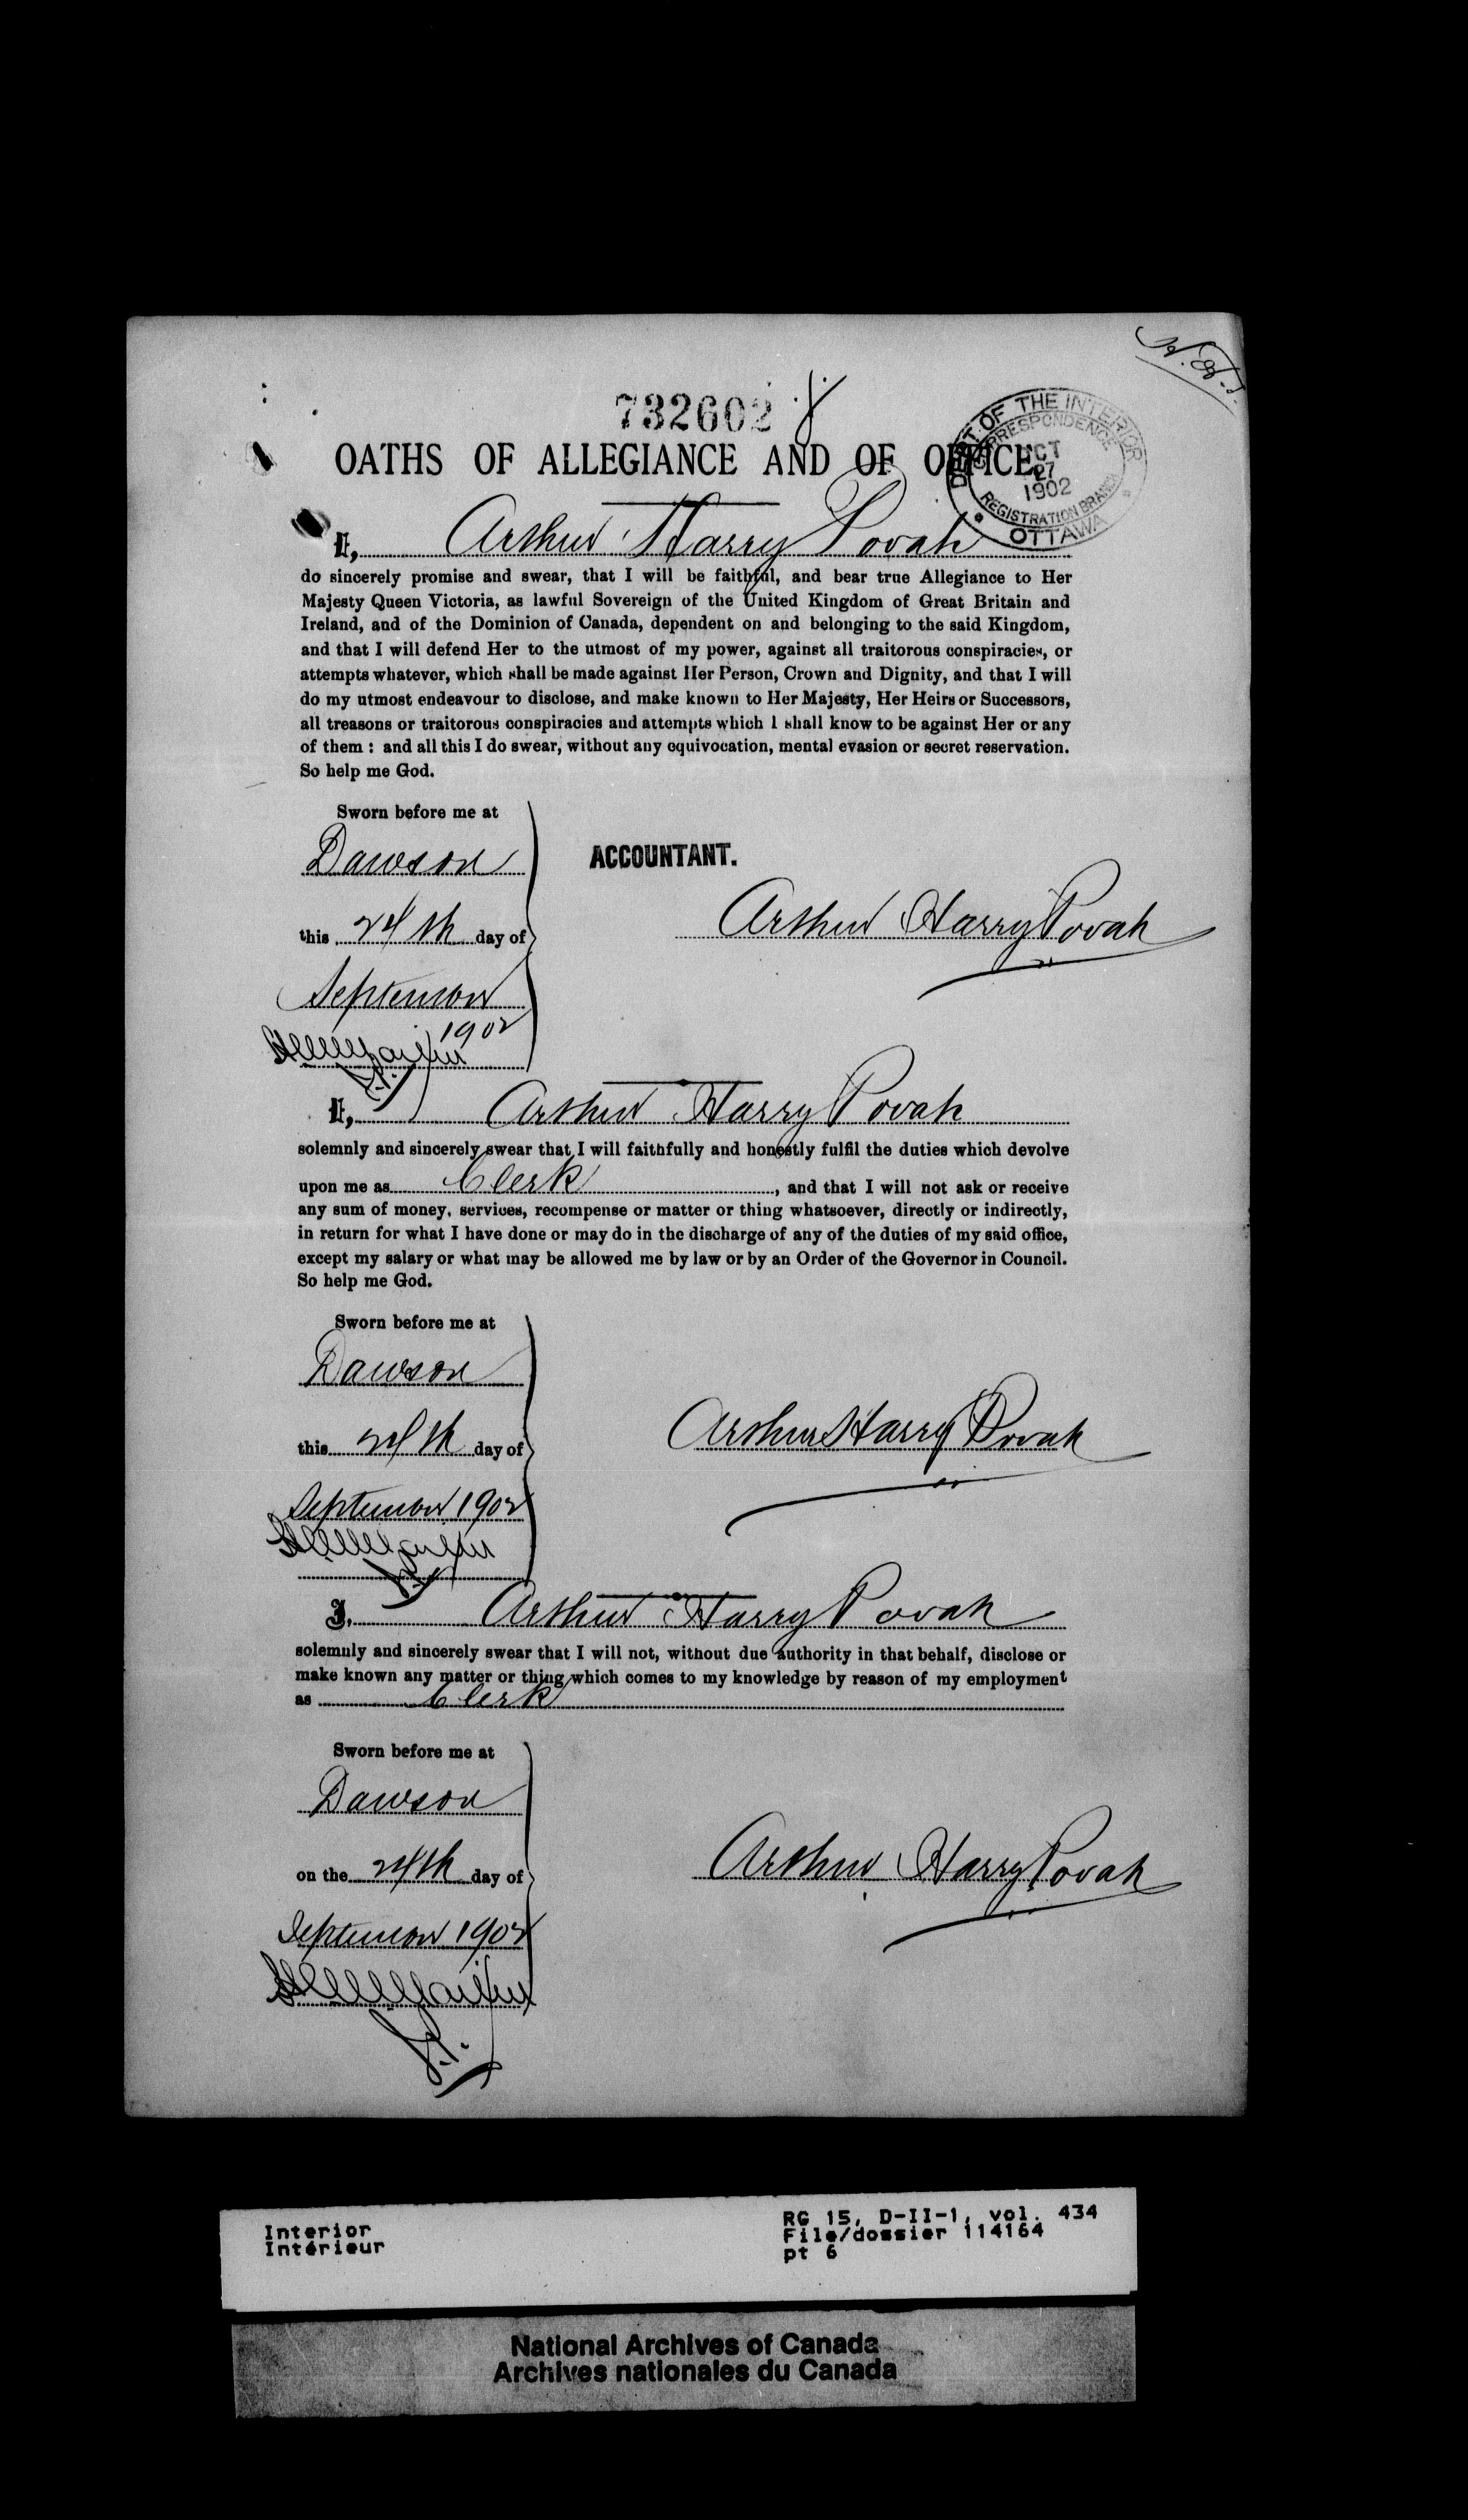 732602
OATHS OF ALLEGIANCE AND OF OFFICE.
DEPT. OF THE INTERIOR
CORRESPONDENCE
OCT
27
1902
REGISTRATION BRANCH
OTTAWA
I, Arthur Harry Povah
do sincerely promise and swear, that I will be faithful, and bear true Allegiance to Her
Majesty Queen Victoria, as lawful Sovereign of the United Kingdom of Great Britain and
Ireland, and of the Dominion of Canada, dependent on and belonging to the said Kingdom,
and that I will defend Her to the utmost of my power, against all traitorous conspiracies, or
attempts whatever, which shall be made against Her Person, Crown and Dignity, and that I will
do my utmost endeavour to disclose, and make known to Her Majesty, Her Heirs or Successors,
all treasons or traitorous conspiracies and attempts which I shall know to be against Her or any
of them : and all this I do swear, without any equivocation, mental evasion or secret reservation.
So help me God.
Sworn before me at
Dawson
ACCOUNTANT.
this 24th day of
Arthur Harry Povah
September
1902
I, Arthur Harry Povah
solemnly and sincerely swear that I will faithfully and honestly fulfil the duties which devolve
upon me as Clerk, and that I will not ask or receive
any sum of money, services, recompense or matter or thing whatsoever, directly or indirectly,
in return for what I have done or may do in the discharge of any of the duties of my said office,
except my salary or what may be allowed me by law or by an Order of the Governor in Council.
So help me God.
Sworn before me at
Dawson
this 24th day of
Arthur Harry Povah
September 1902
I, Arthur Harry Povah
solemnly and sincerely swear that I will not, without due authority in that behalf, disclose or
make known any matter or thing which comes to my knowledge by reason of my employment
as Clerk
Sworn before me at
Dawson
on the 24th day of
Arthur Harry Povah
September 1902
Interior
Intérieur
RG 15, D-II-1, vol. 434
File/dossier 114164
pt 6
National Archives of Canada
Archives nationales du Canada